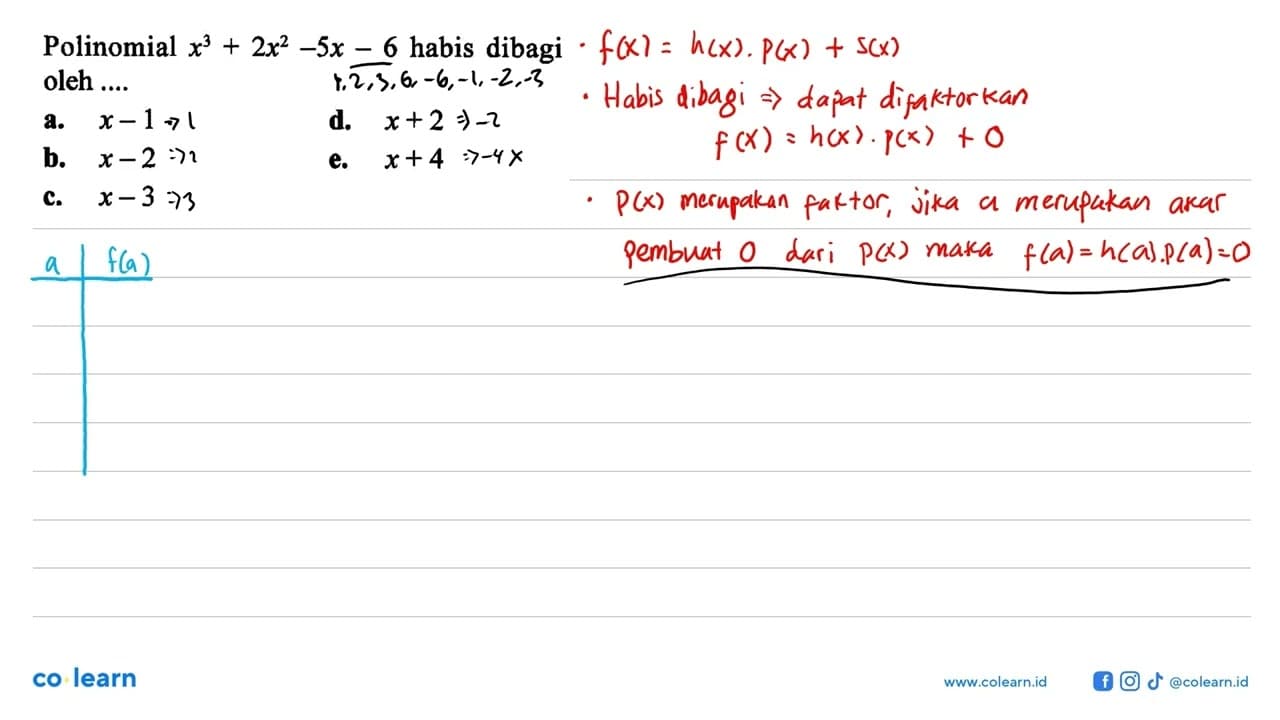 Polinomial x³ + 2x² –5x – 6 habis dibagi
oleh ....
1, 2, 3, 6, -6, -1, -2, -3
a. x – 1 ⇒ 1
d. x + 2 ⇒ -2
b. x – 2 ⇒ 2
e. x + 4 ⇒ -4 x
c. x – 3 ⇒ 3
• f(x) = h(x). P(x) + s(x)
• Habis dibagi ⇒ dapat difaktorkan
f(x) = h(x). p(x) + 0
• P(x) merupakan faktor, jika a merupakan akar
pembuat 0 dari p(x) maka f(a) = h(a).p(a)=0
a f(a)
co learn
www.colearn.id
@colearn.id